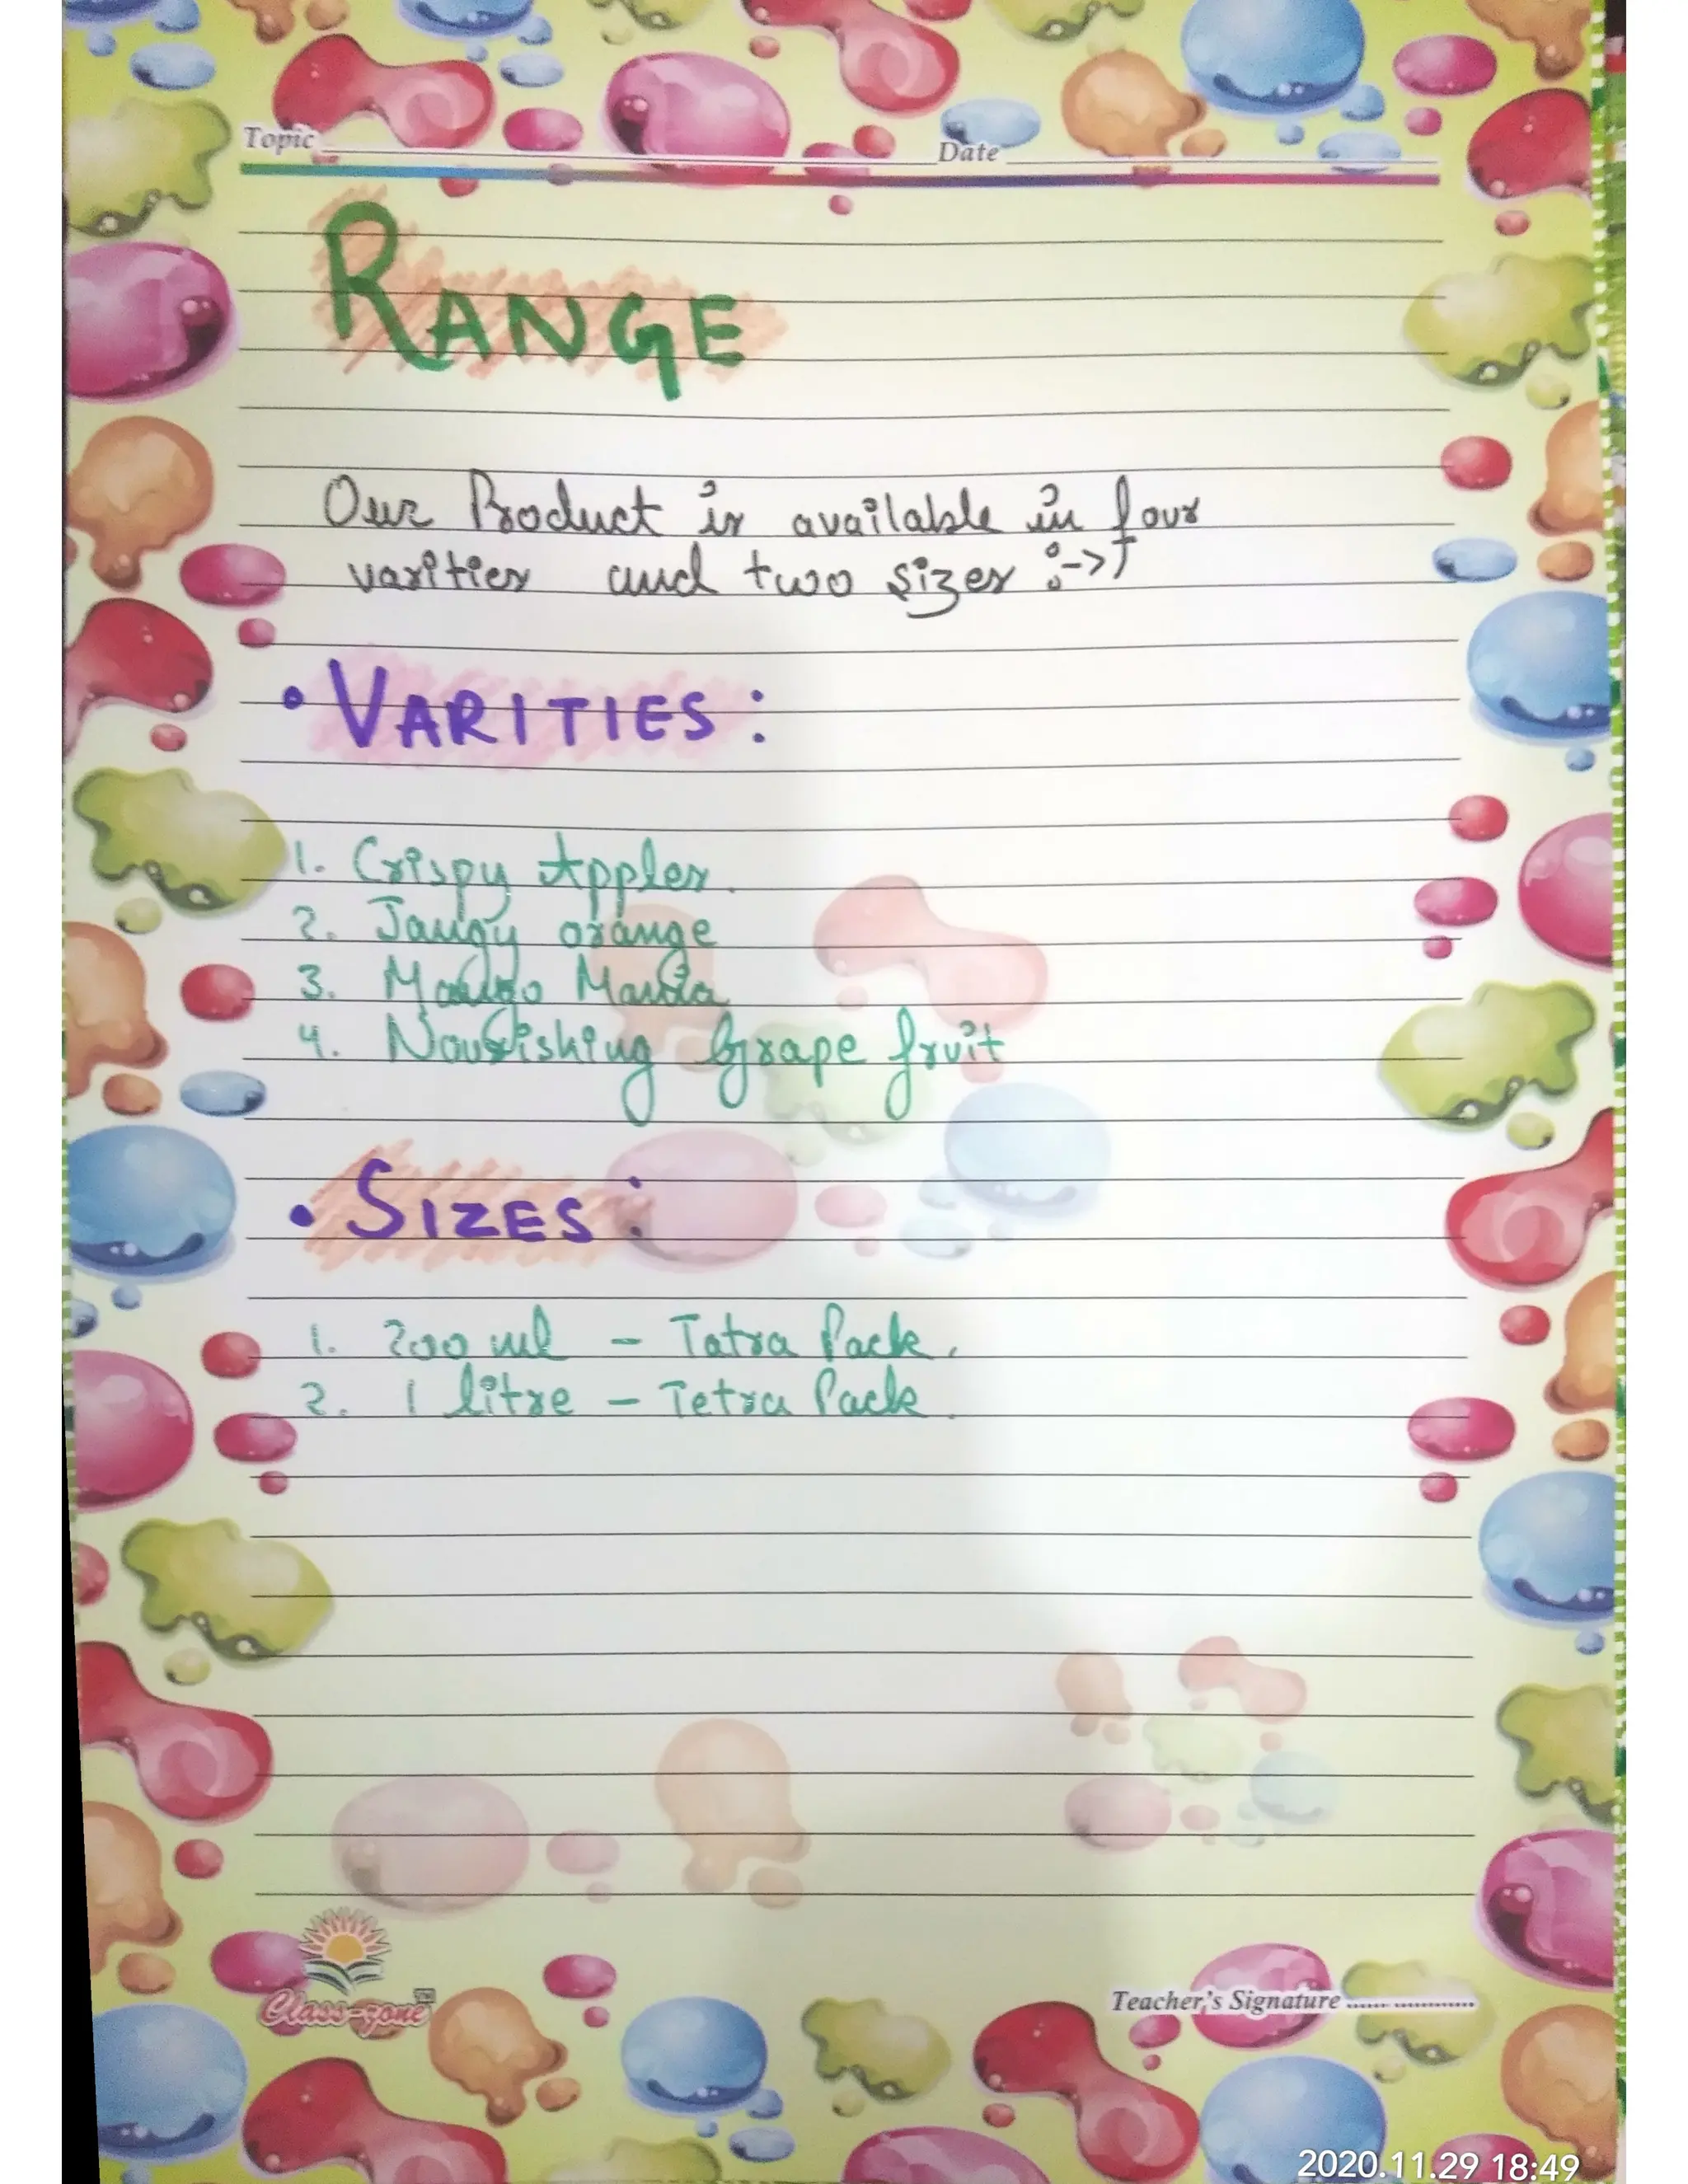 Topic Date
RANGE
Our Product is available in four
varities and two sizes :->
• VARITIES :
1. Crispy Apples.
2. Tangy orange
3. Mango Mania
4. Nourishing Grape fruit
• SIZES :
1. 200 ml - Tatra Pack.
2. 1 litre - Tetra Pack.
Class-zone TM
Teacher's Signature ...... .............
2020.11.29 18:49